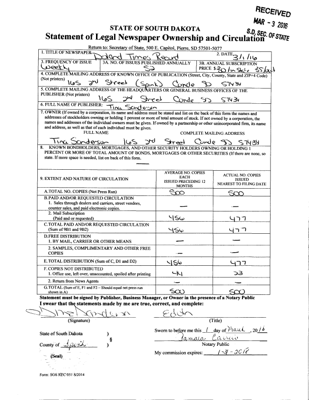 RECEIVED
MAR - 3 2016
S.D. SEC. OF STATE
STATE OF SOUTH DAKOTA
Statement of Legal Newspaper Ownership and Circulation
Return to: Secretary of State, 500 E. Capitol, Pierre, SD 57501-5077
1. TITLE OF NEWSPAPER
Times Record
2. DATE
3/1/16
3. FREQUENCY OF ISSUE
Weekly
3A. NO. OF ISSUES PUBLISHED ANNUALLY
52
3B. ANNUAL SUBSCRIPTION
PRICE
4. COMPLETE MAILING ADDRESS OF KNOWN OFFICE OF PUBLICATION (Street, City, County, State and ZIP+4 Code)
(Not printers)
165 2nd Street SD 57434
5. COMPLETE MAILING ADDRESS OF THE HEADQUARTERS OR GENERAL BUSINESS OFFICES OF THE
PUBLISHER (Not printers)
165 2nd Street SD 57434
6. FULL NAME OF PUBLISHER
Tina Sanderson
7. OWNER (If owned by a corporation, its name and address must be stated and also immediately
FULL NAME
COMPLETE MAILING ADDRESS
Tina Sanderson 165 2nd Street SD 57434
8. KNOWN BONDHOLDERS, MORTGAGES, AND OTHER SECURITY HOLDERS OWNING OR HOLDING 1
PERCENT OR MORE OF TOTAL AMOUNT OF BONDS, MORTGAGES OR OTHER SECURITIES (If there are none, so
state. If more space is needed, list on back of this form.
9. EXTENT AND NATURE OF CIRCULATION
AVERAGE NO. COPIES
EACH
ISSUED PRECEDING 12
MONTHS
ACTUAL NO. COPIES
ISSUED
NEAREST TO FILING DATE
A. TOTAL NO. COPIES (Net Press Run)
500
500
B. PAID AND/OR REQUESTED CIRCULATION
1. Sales through dealers and carriers, street vendors,
counter sales, and paid electronic copies.
2. Mail Subscription
(Paid and or requested)
456
477
C. TOTAL PAID AND/OR REQUESTED CIRCULATION
(Sum of 9B1 and 9B2)
456
477
D. FREE DISTRIBUTION
1. BY MAIL, CARRIER OR OTHER MEANS
2. SAMPLES, COMPLIMENTARY AND OTHER FREE
COPIES
E. TOTAL DISTRIBUTION (Sum of C, D1 and D2)
456
477
F. COPIES NOT DISTRIBUTED
1. Office use, left over, unaccounted, spoiled after printing
44
23
2. Return from News Agents.
G. TOTAL (Sum of E, F1 and F2 - Should equal net press run
shown in A)
500
500
Statement must be signed by Publisher, Business Manager, or Owner in the presence of a Notary Public
I swear that the statements made by me are true, correct, and complete:
(Signature)
(Title)
State of South Dakota
County of
(Seal)
Sworn to before me this 1 day of March, 2016
Notary Public
My commission expires: